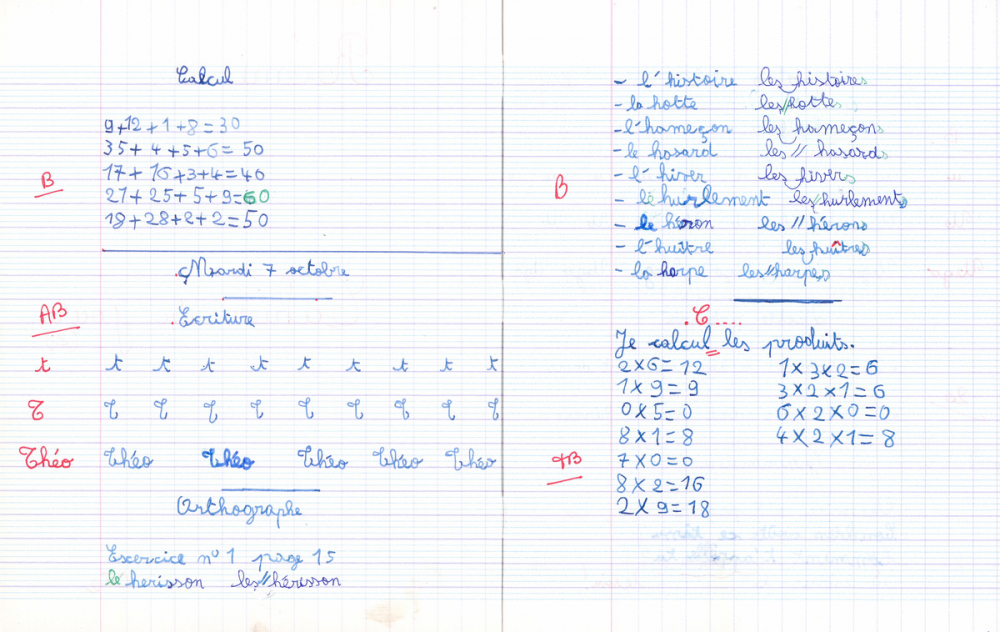 Calcul
9+12+1+8=30
35+4+5+6=50
17+16+3+4=40
B
21+25+5+9=60
18+28+2+2=50
Mardi 7 octobre
AB
Ecriture
t t t t t t t t t t
T T T T T T T T T T
Théo Théo Théo Théo Théo Théo
Orthographe
Exercice n°1 page 15
le herisson les//hérisson
- l'histoire les histoires
- la hotte les//hottes
- l'hameçon les hameçons
- le hasard les//hasards
- l'hiver les hivers
B
- le hurlement les//hurlements
- le héron les//hérons
- l'huître les huîtres
- la harpe les//harpes
.C....
Je calcul les produits.
2×6=12 1×3×2=6
1×9=9 3×2×1=6
0×5=0 6×2×0=0
8×1=8 4×2×1=8
7×0=0
8×2=16
2×9=18